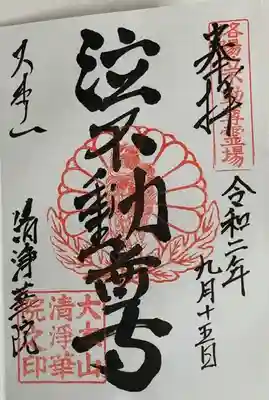 奉拝
洛陽六阿弥尊霊場
令和二年
九月十五日
泣不動尊
大本山
清浄華院
大本山
清浄華
院之印